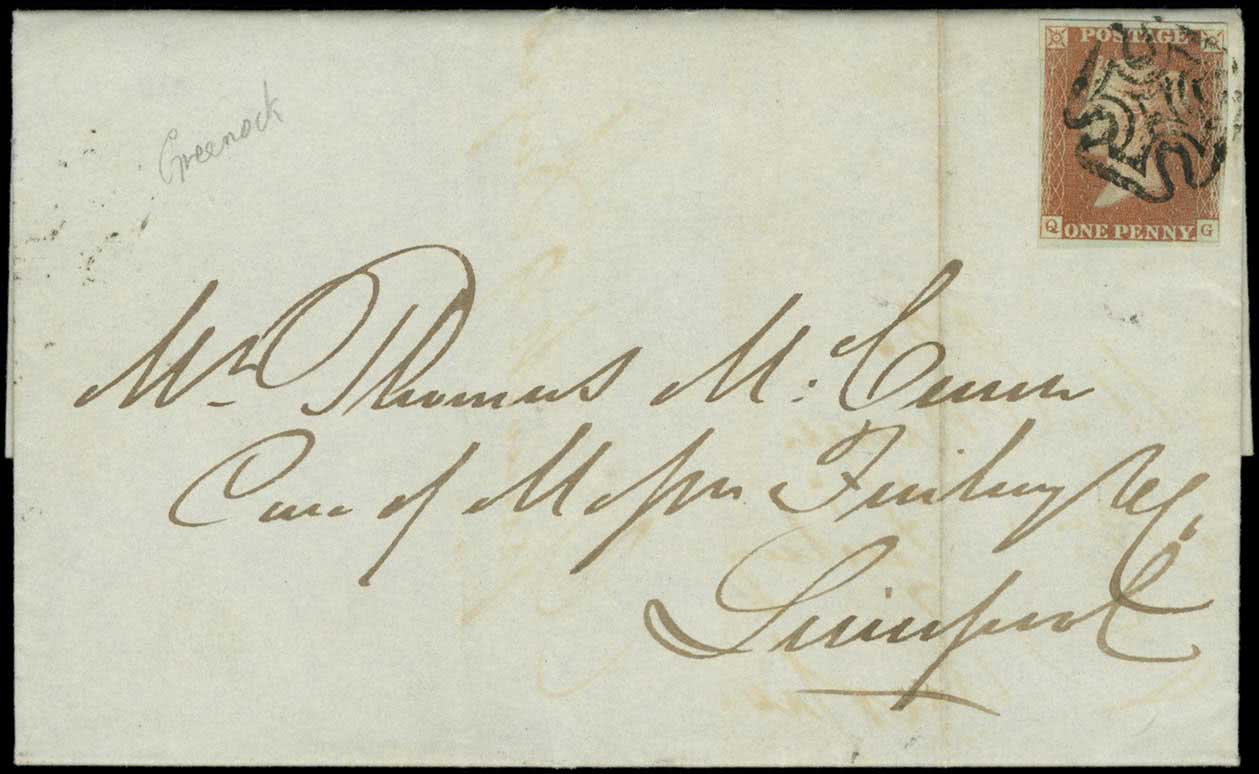 Greenock
POSTAGE
Q G
ONE PENNY
Mr Thomas Mc:
Care of Messrs Finlay & Co.
Liverpool